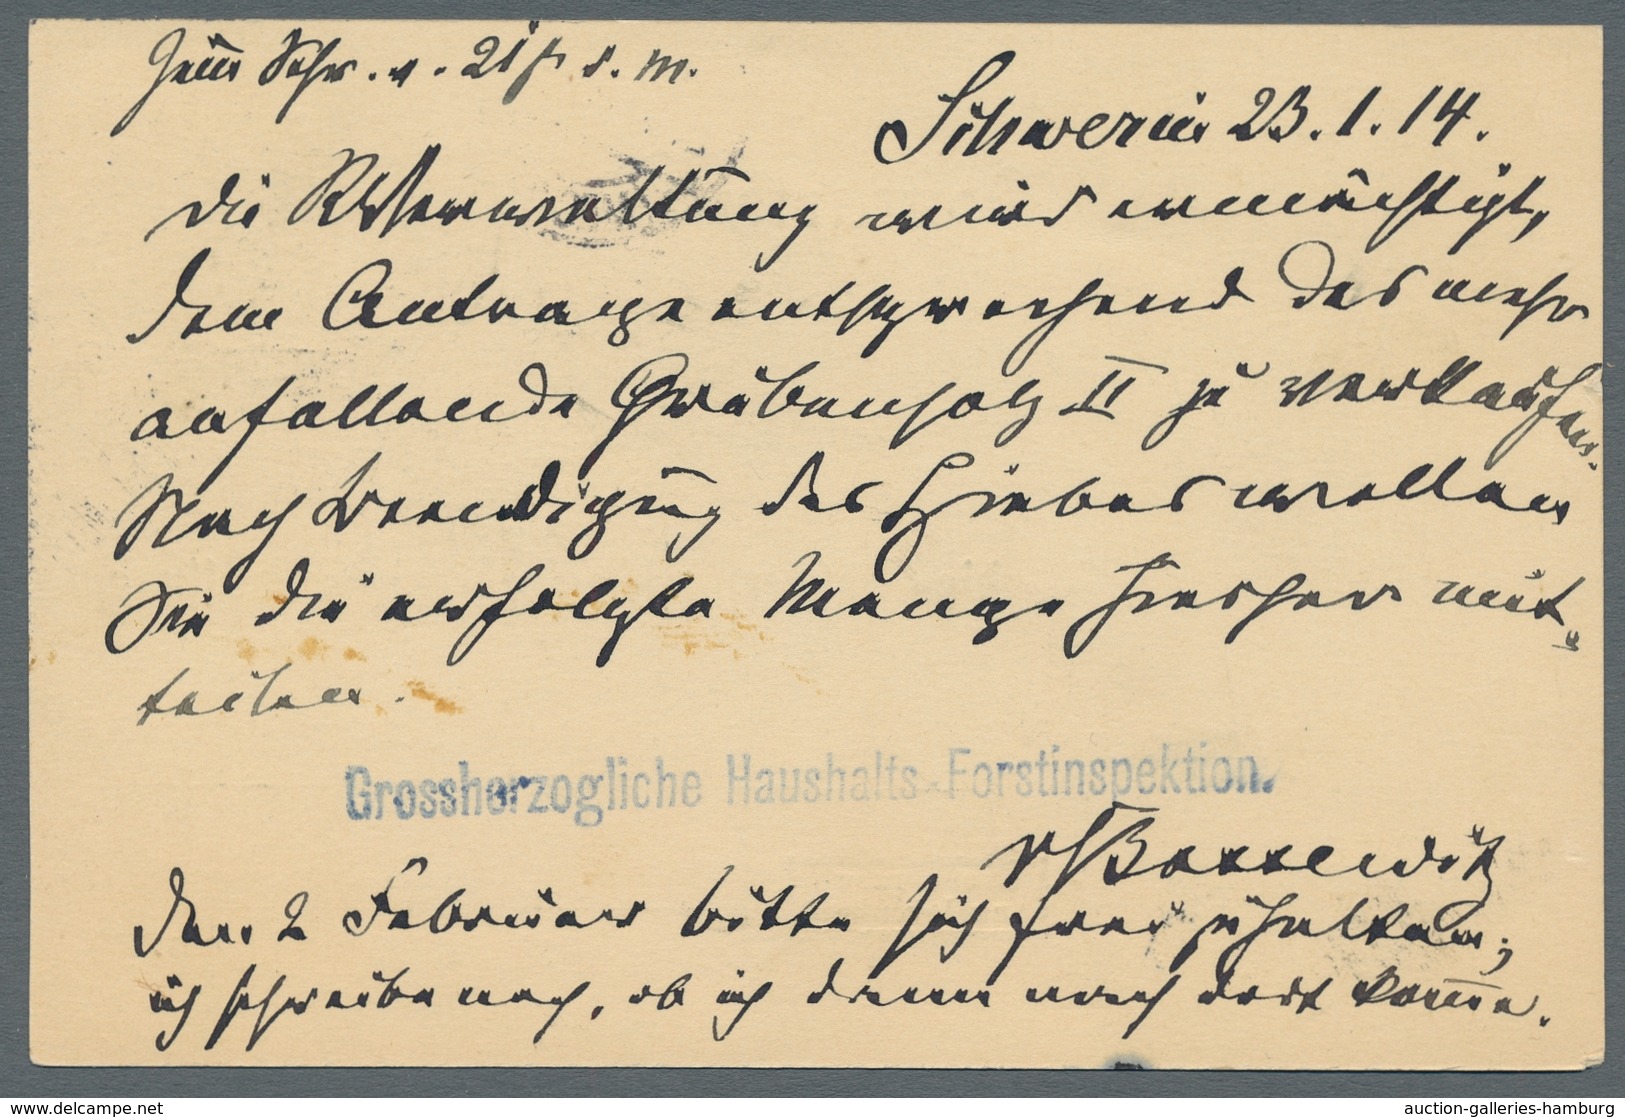 Schr. v. 21/1 d. M.
Schwerin 23.1.14.
Die Verwaltung wird ermächtigt,
dem Antrage entsprechend das mehr
anfallende Grubenholz II zu verkaufen.
Nach Beendigung des Hiebes wollen
Sie die erfolgte Menge hierher mit-
teilen.
Grossherzogliche Haushalts-Forstinspektion.
v Bassewitz
Den 2 Februar bitte sich frei zu halten;
ich schreibe noch, ob ich dann nach dort komme.
delcampe.net
auction-galleries-hamburg